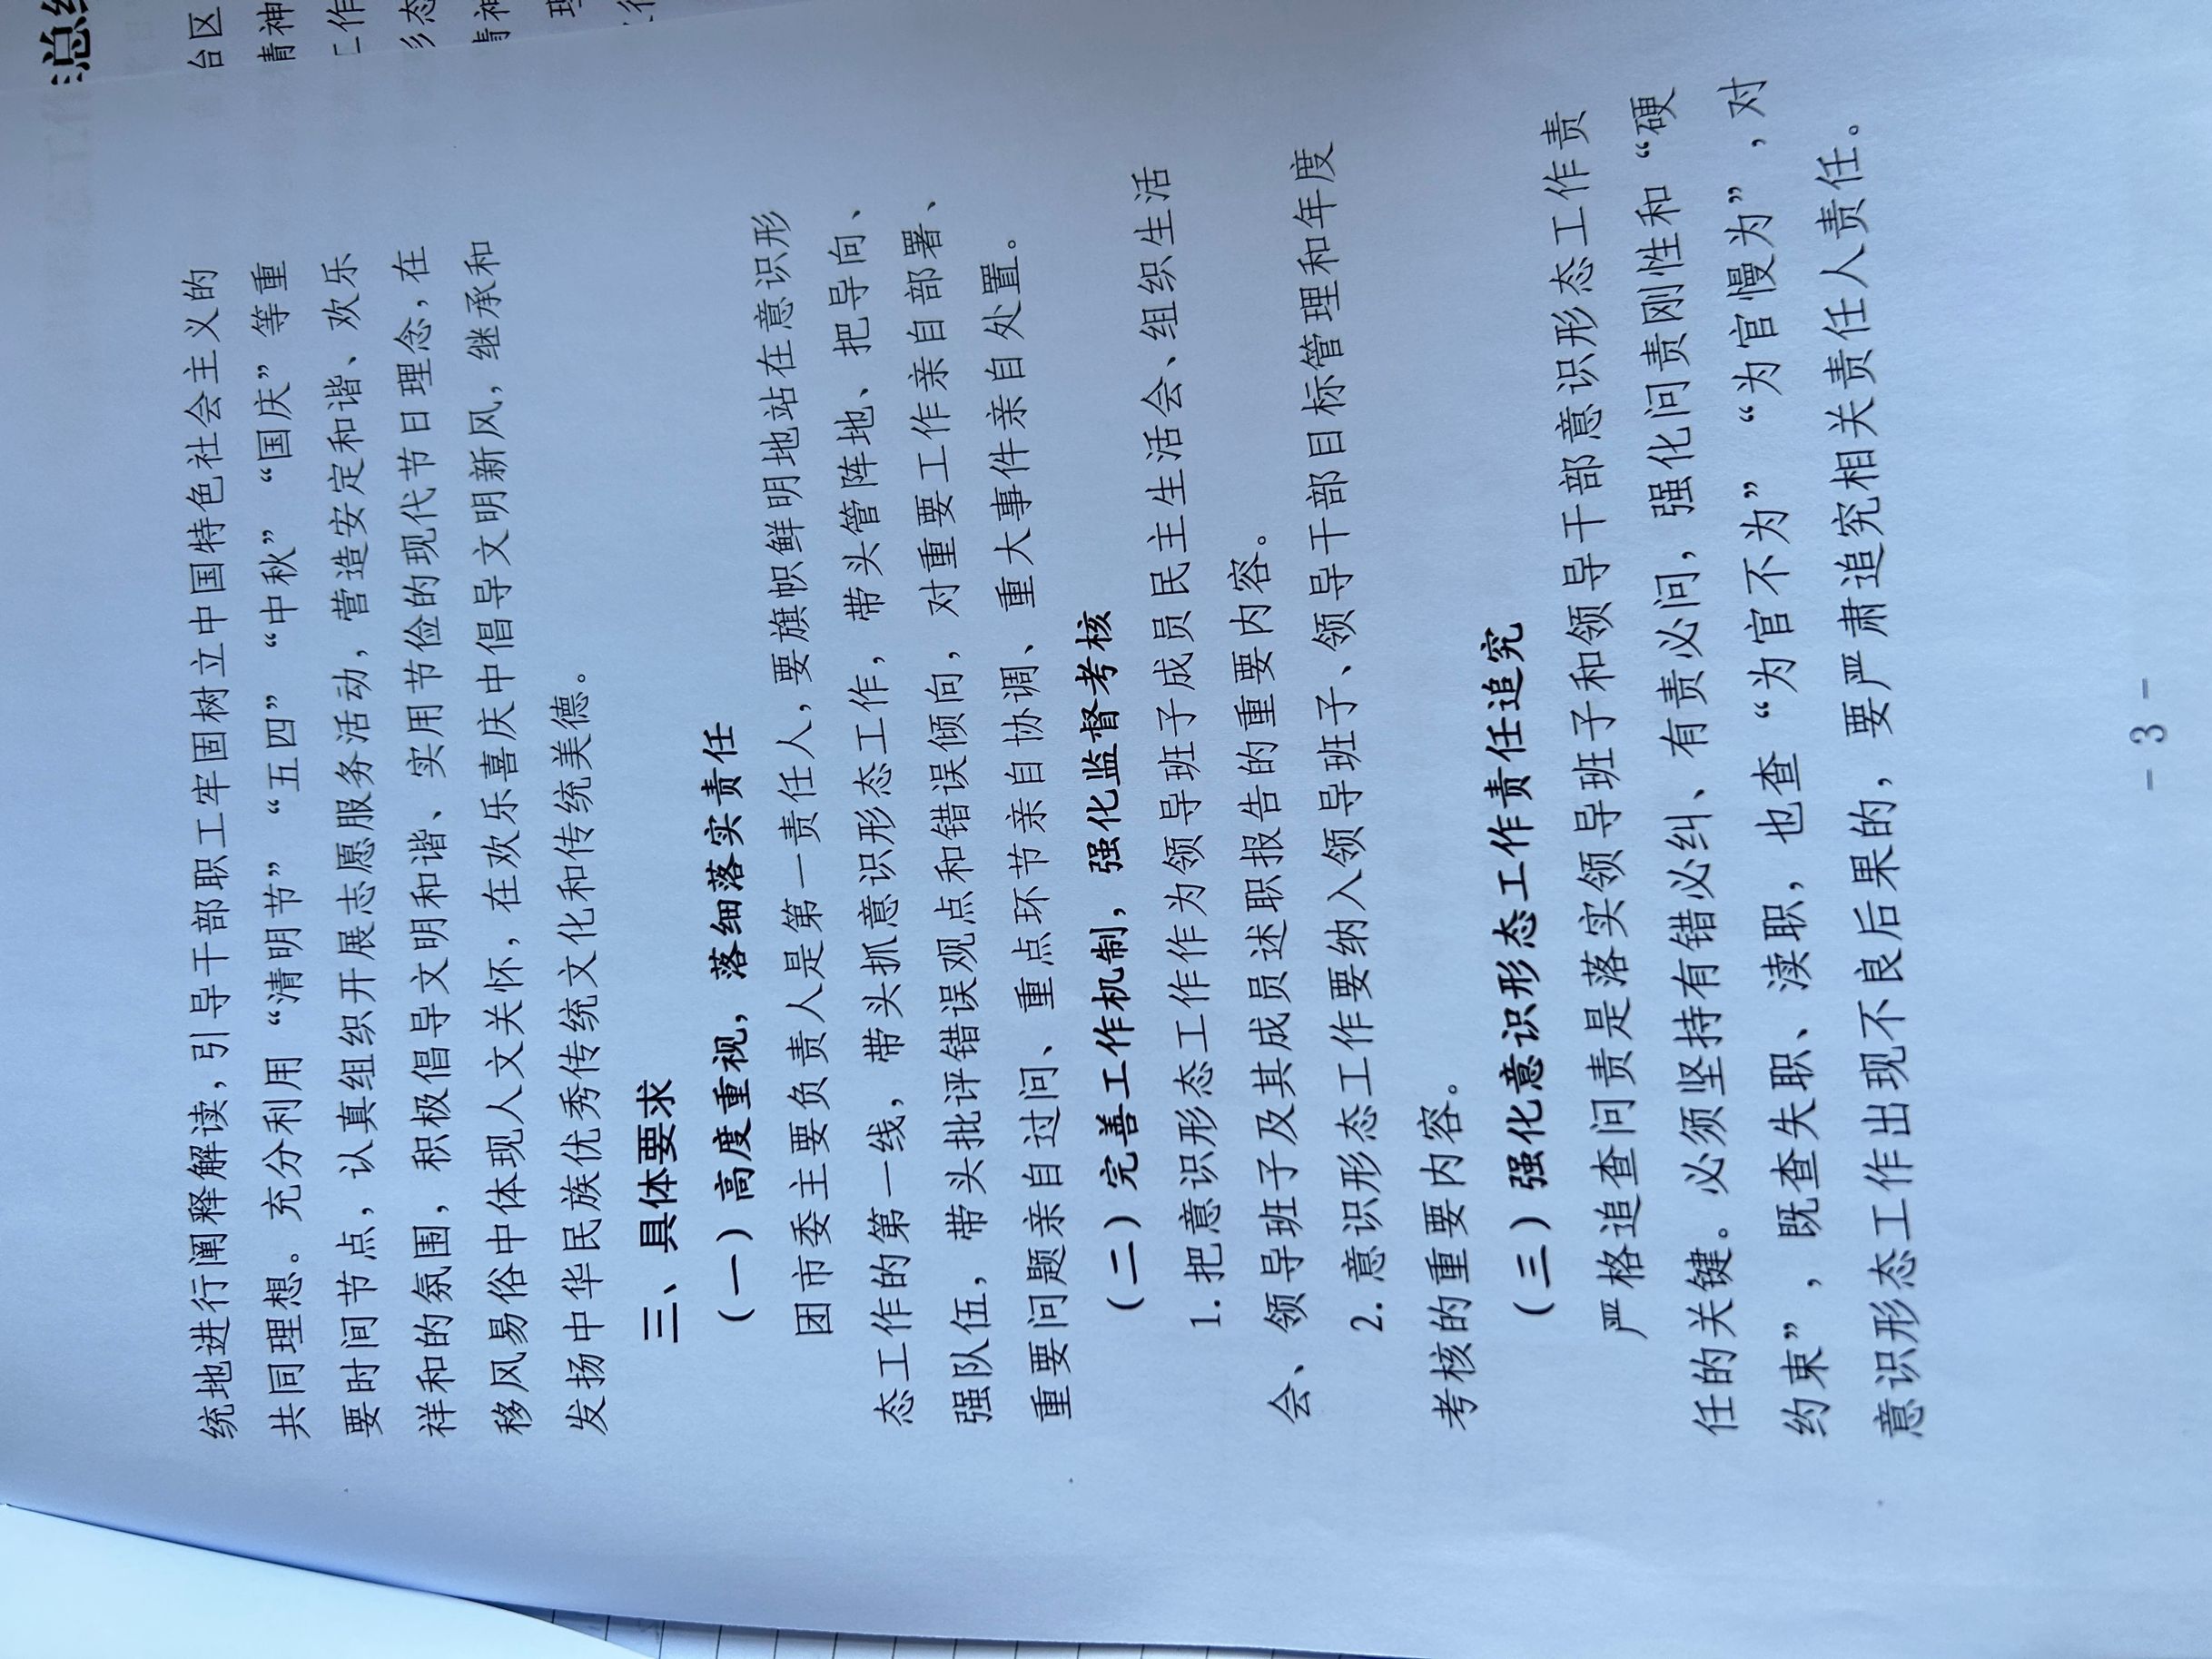 统地进行阐释解读,引导干部职工牢固树立中国特色社会主义的
共同理想。充分利用“清明节”“五四”“中秋”“国庆”等重
要时间节点,认真组织开展志愿服务活动,营造安定和谐、欢乐
祥和的氛围,积极倡导文明和谐、实用节俭的现代节日理念,在
移风易俗中体现人文关怀,在欢乐喜庆中倡导文明新风,继承和
发扬中华民族优秀传统文化和传统美德。
三、具体要求
(一)高度重视,落细落实责任
团市委主要负责人是第一责任人,要旗帜鲜明地站在意识形
态工作的第一线,带头抓意识形态工作,带头管阵地、把导向、
强队伍,带头批评错误观点和错误倾向,对重要工作亲自部署、
重要问题亲自过问、重点环节亲自协调、重大事件亲自处置。
(二)完善工作机制,强化监督考核
1.把意识形态工作作为领导班子成员民主生活会、组织生活
会、领导班子及其成员述职报告的重要内容。
2.意识形态工作要纳入领导班子、领导干部目标管理和年度
考核的重要内容。
(三)强化意识形态工作责任追究
严格追查问责是落实领导班子和领导干部意识形态工作责
任的关键。必须坚持有错必纠、有责必问,强化问责刚性和“硬
约束”,既查失职、渎职,也查“为官不为”“为官慢为”,对
意识形态工作出现不良后果的,要严肃追究相关责任人责任。
- 3 -
总
台区
精神
工作
态
精神
理